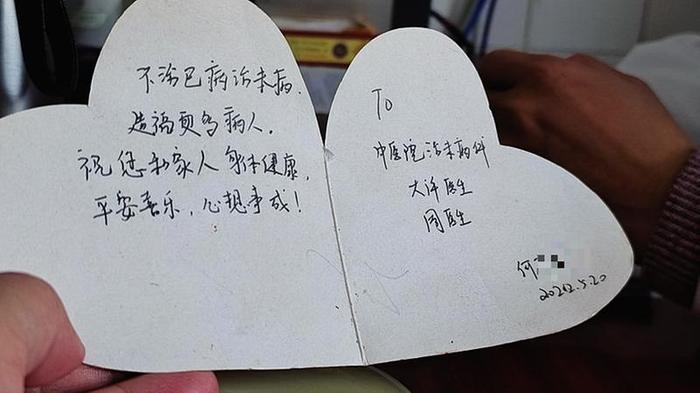 不治已病治未病，
造福更多病人。
祝您和家人身体健康，
平安喜乐，心想事成！
To
中医院治未病科
大许医生
周医生
何
2022.5.20